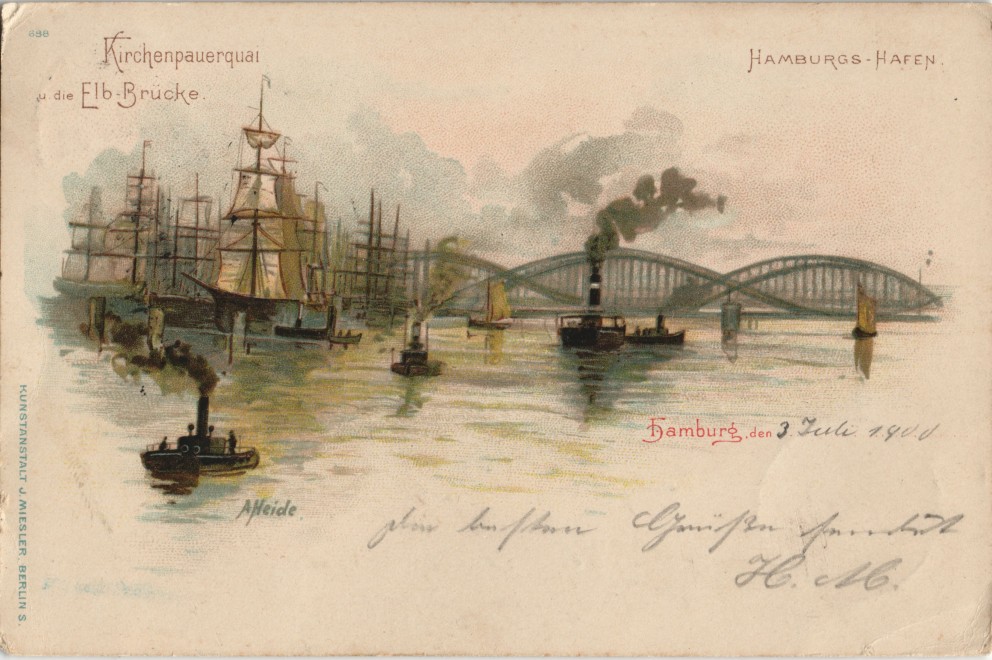 688
Kirchenpauerquai
u. die Elb-Brücke.
HAMBURGS-HAFEN.
Hamburg, den 3. Juli 1900
die besten Grüße sendet
H. M.
AHeide.
KUNSTANSTALT J. MIESLER, BERLIN S.